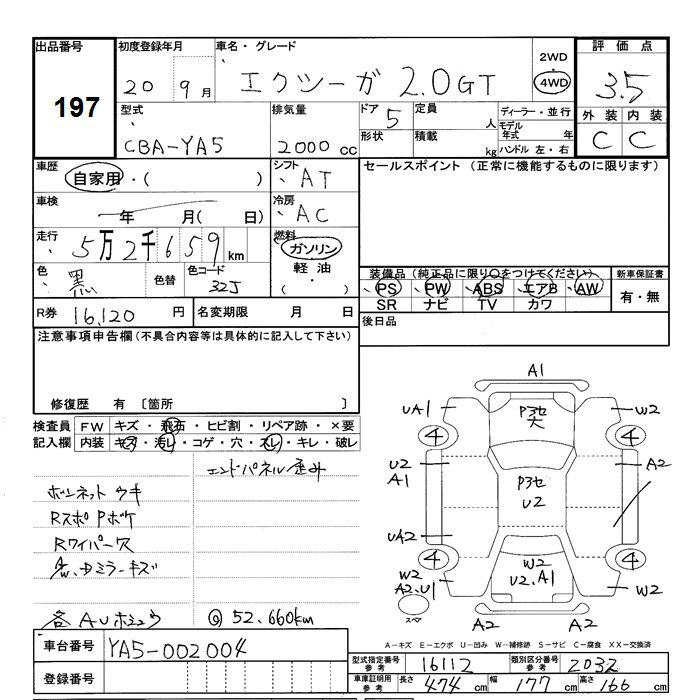 出品番号
197
初度登録年月
20 9月
車名・グレード
エクシーガ 2.0GT
2WD
4WD
評価点
3.5
外装 内装
C C
型式
CBA-YA5
排気量
2000 cc
ドア
5
形状
定員
人
積載
kg
ディーラー・並行
モデル
年式 年
ハンドル 左・右
車歴
自家用・( )
シフト
AT
セールスポイント (正常に機能するものに限ります)
車検
年 月( 日)
冷房
AC
走行
5万2千659km
燃料
ガソリン
軽油
( )
色
黒
色替
色コード
32J
装備品 (純正品に限り○をつけてください)
PS PW ABS エアB AW
SR ナビ TV カワ
新車保証書
有・無
R券
16,120 円
名変期限 月 日
後日品
注意事項申告欄 (不具合内容等は具体的に記入して下さい)
修復歴 有 〔箇所 〕
検査員
記入欄
FW キズ・飛石・ヒビ割・リペア跡・×要
内装 キズ・汚レ・コゲ・穴・スレ・キレ・破レ
エンドパネル歪み
ボンネットウキ
RスポPボケ
Rワイパー欠
A/w、ドミラーキズ
各AUホシュウ
@52,660km
A1
UA1
W2
P3セ
大
4
4
U2
A1
A2
P3セ
U2
UA2
4
4
W2
A2、U1
W2
U2、A1
W2
スペ
A2
A2
A-キズ E-エクボ U-凹み W-補修跡 S-サビ C-腐食 XX-交換済
車台番号
YA5-002004
登録番号
型式指定番号
参考
16112
類別区分番号
参考
2032
車庫証明用
参考
長さ
474 cm
幅
177 cm
高さ
166 cm